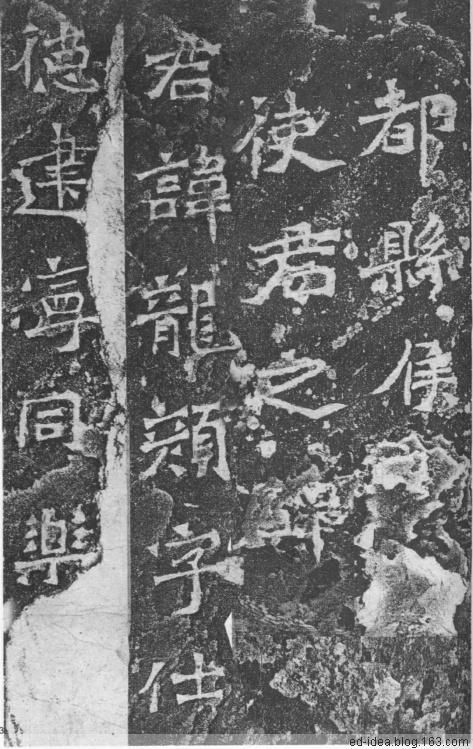 都縣侯
使君之碑
君諱龍顏字仕
德建寧同樂
ed-idea.blog.163.com